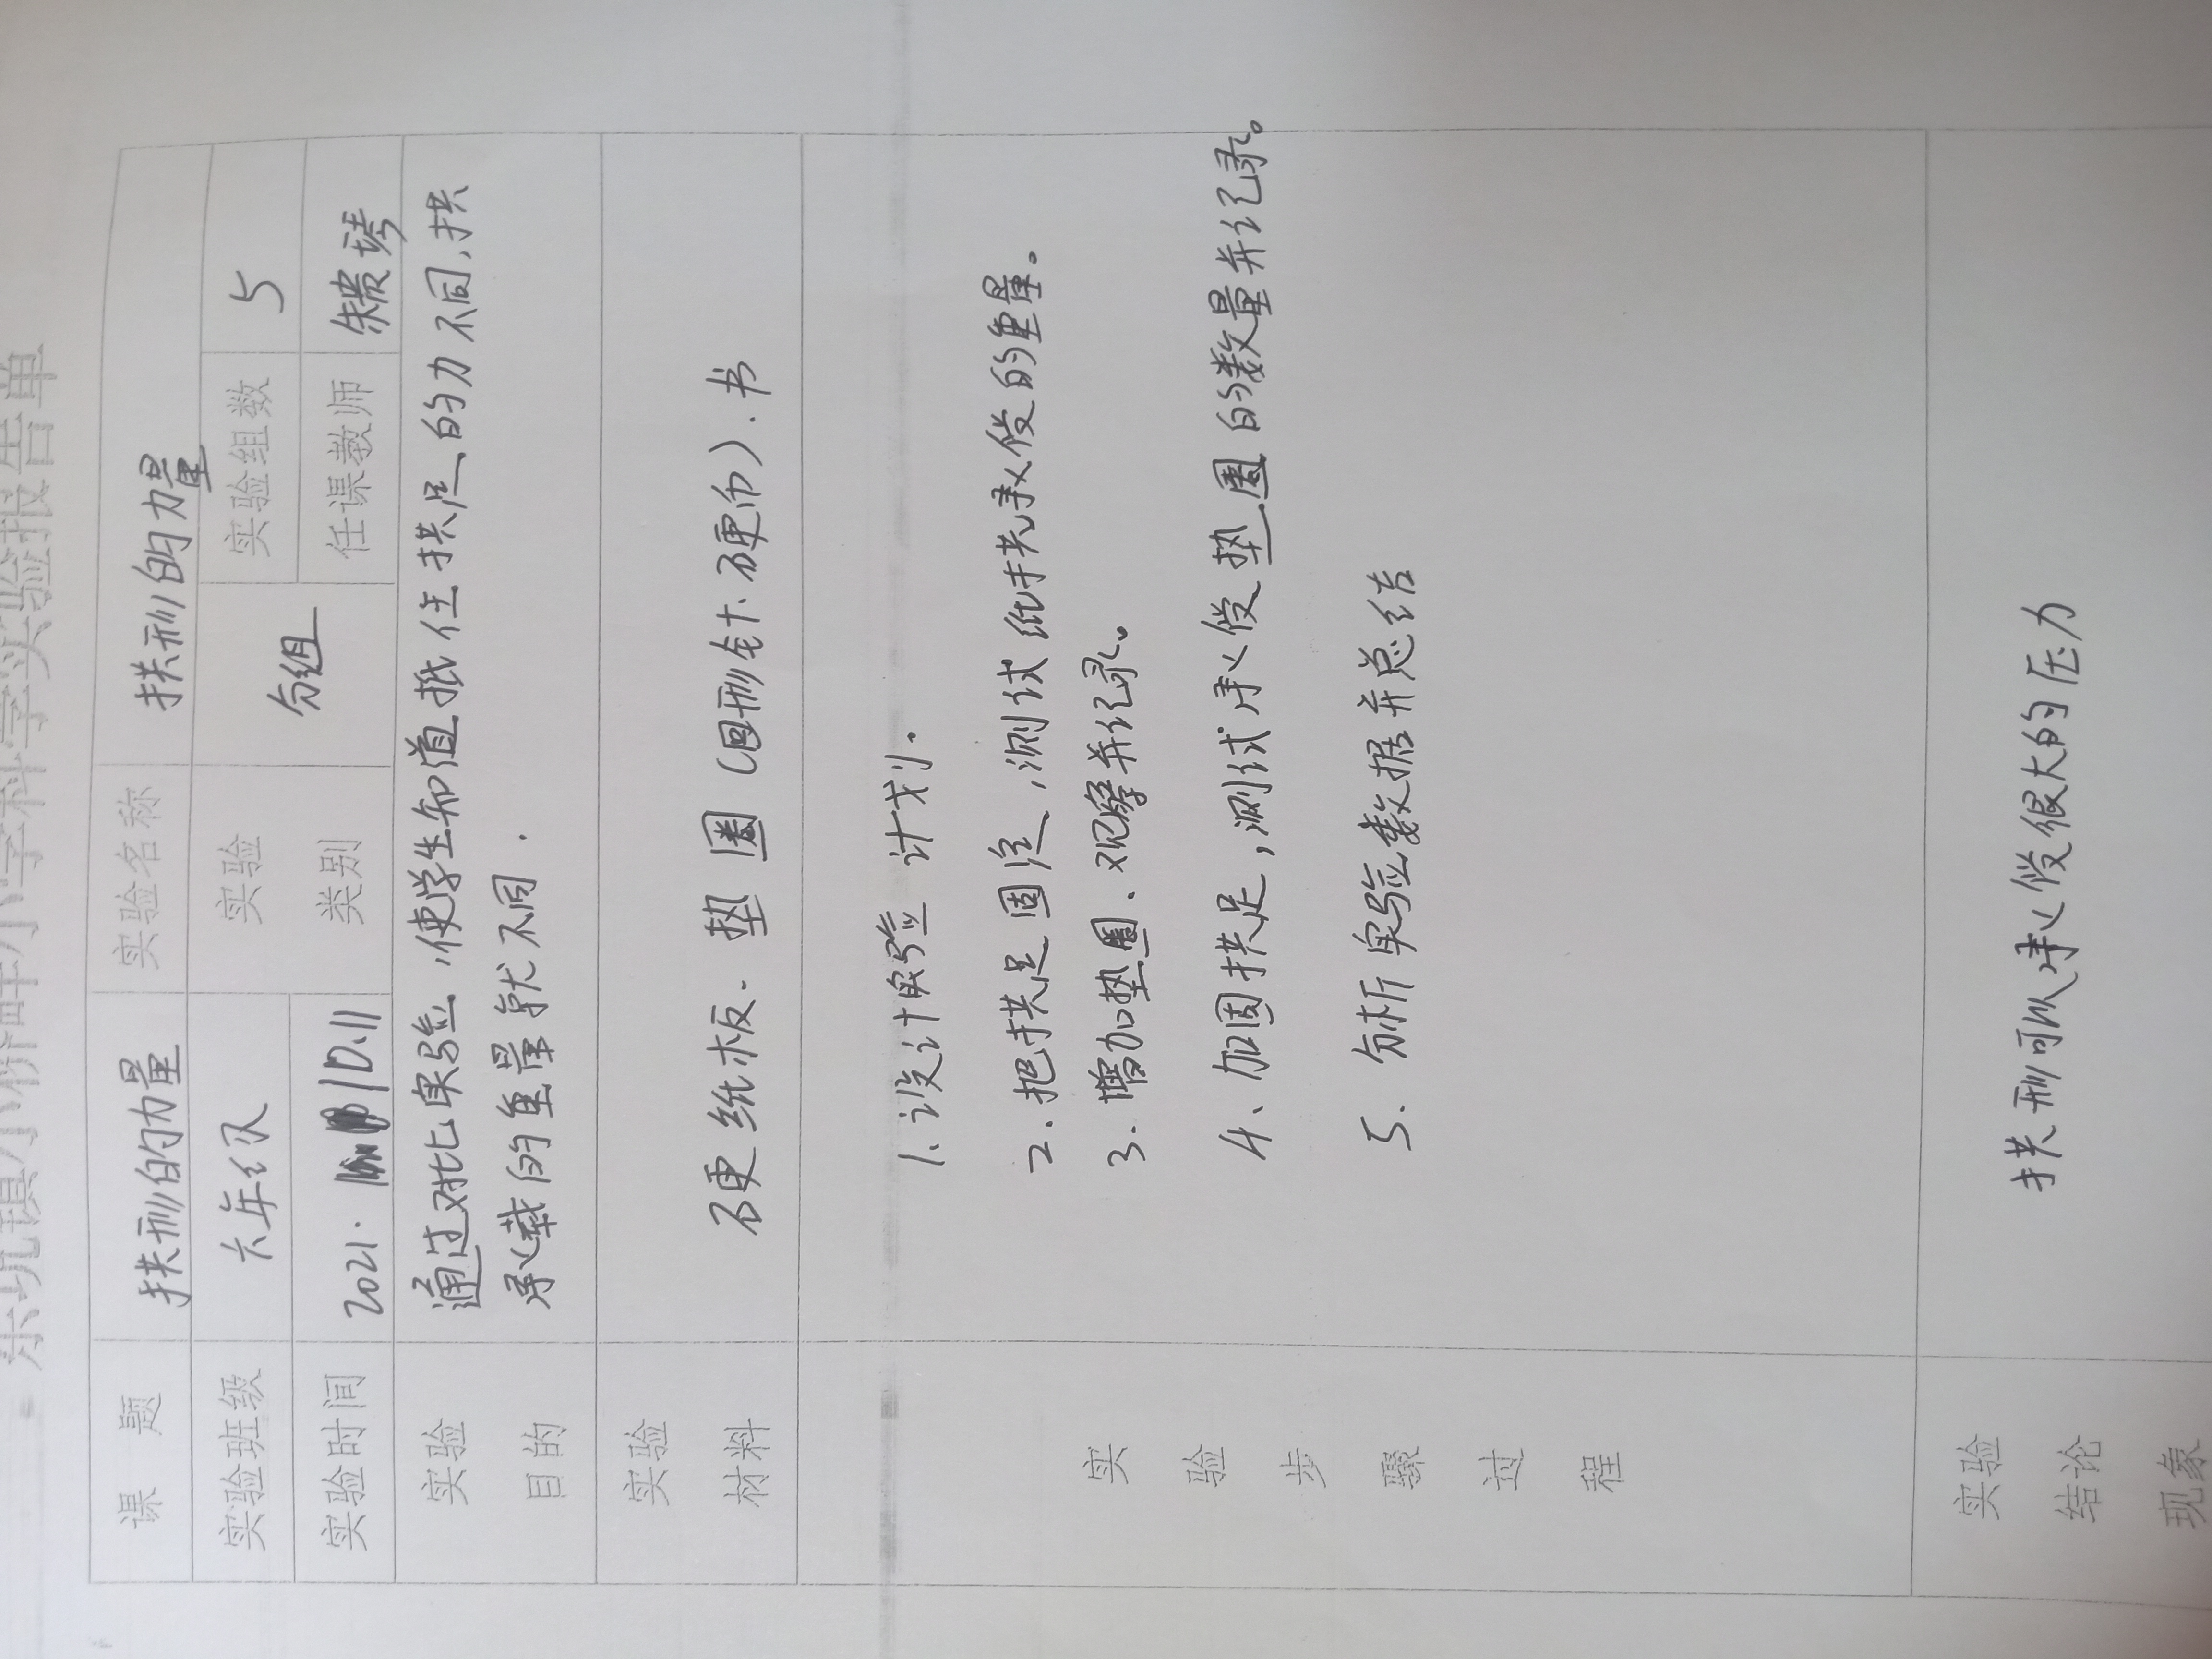 小学科学实验报告单
课 题 拱形的力量 实验名称 拱形的力量
实验班级 六年级 实验类别 分组 实验组数 5
实验时间 2021. 10.11 任课教师 朱贵
实验目的 通过对比实验,使学生知道抵住拱足的力不同,拱
承载的重量就不同.
实验材料 硬纸板. 垫圈(回形针、硬币). 书
实验步骤过程
1. 设计实验计划.
2. 把拱足固定,测试纸拱承受的重量。
3. 增加垫圈、观察并记录。
4、加固拱足,测试承受垫圈的数量并记录。
5. 分析实验数据并总结
实验结论现象 拱形可以承受很大的压力